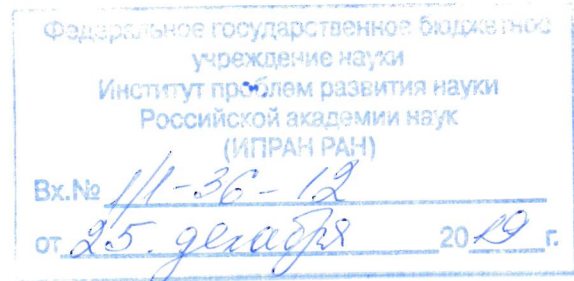 Федеральное государственное бюджетное
учреждение науки
Институт проблем развития науки
Российской академии наук
(ИПРАН РАН)
Вх.№ 1/1-36-12
от 25. декабря 2019 г.